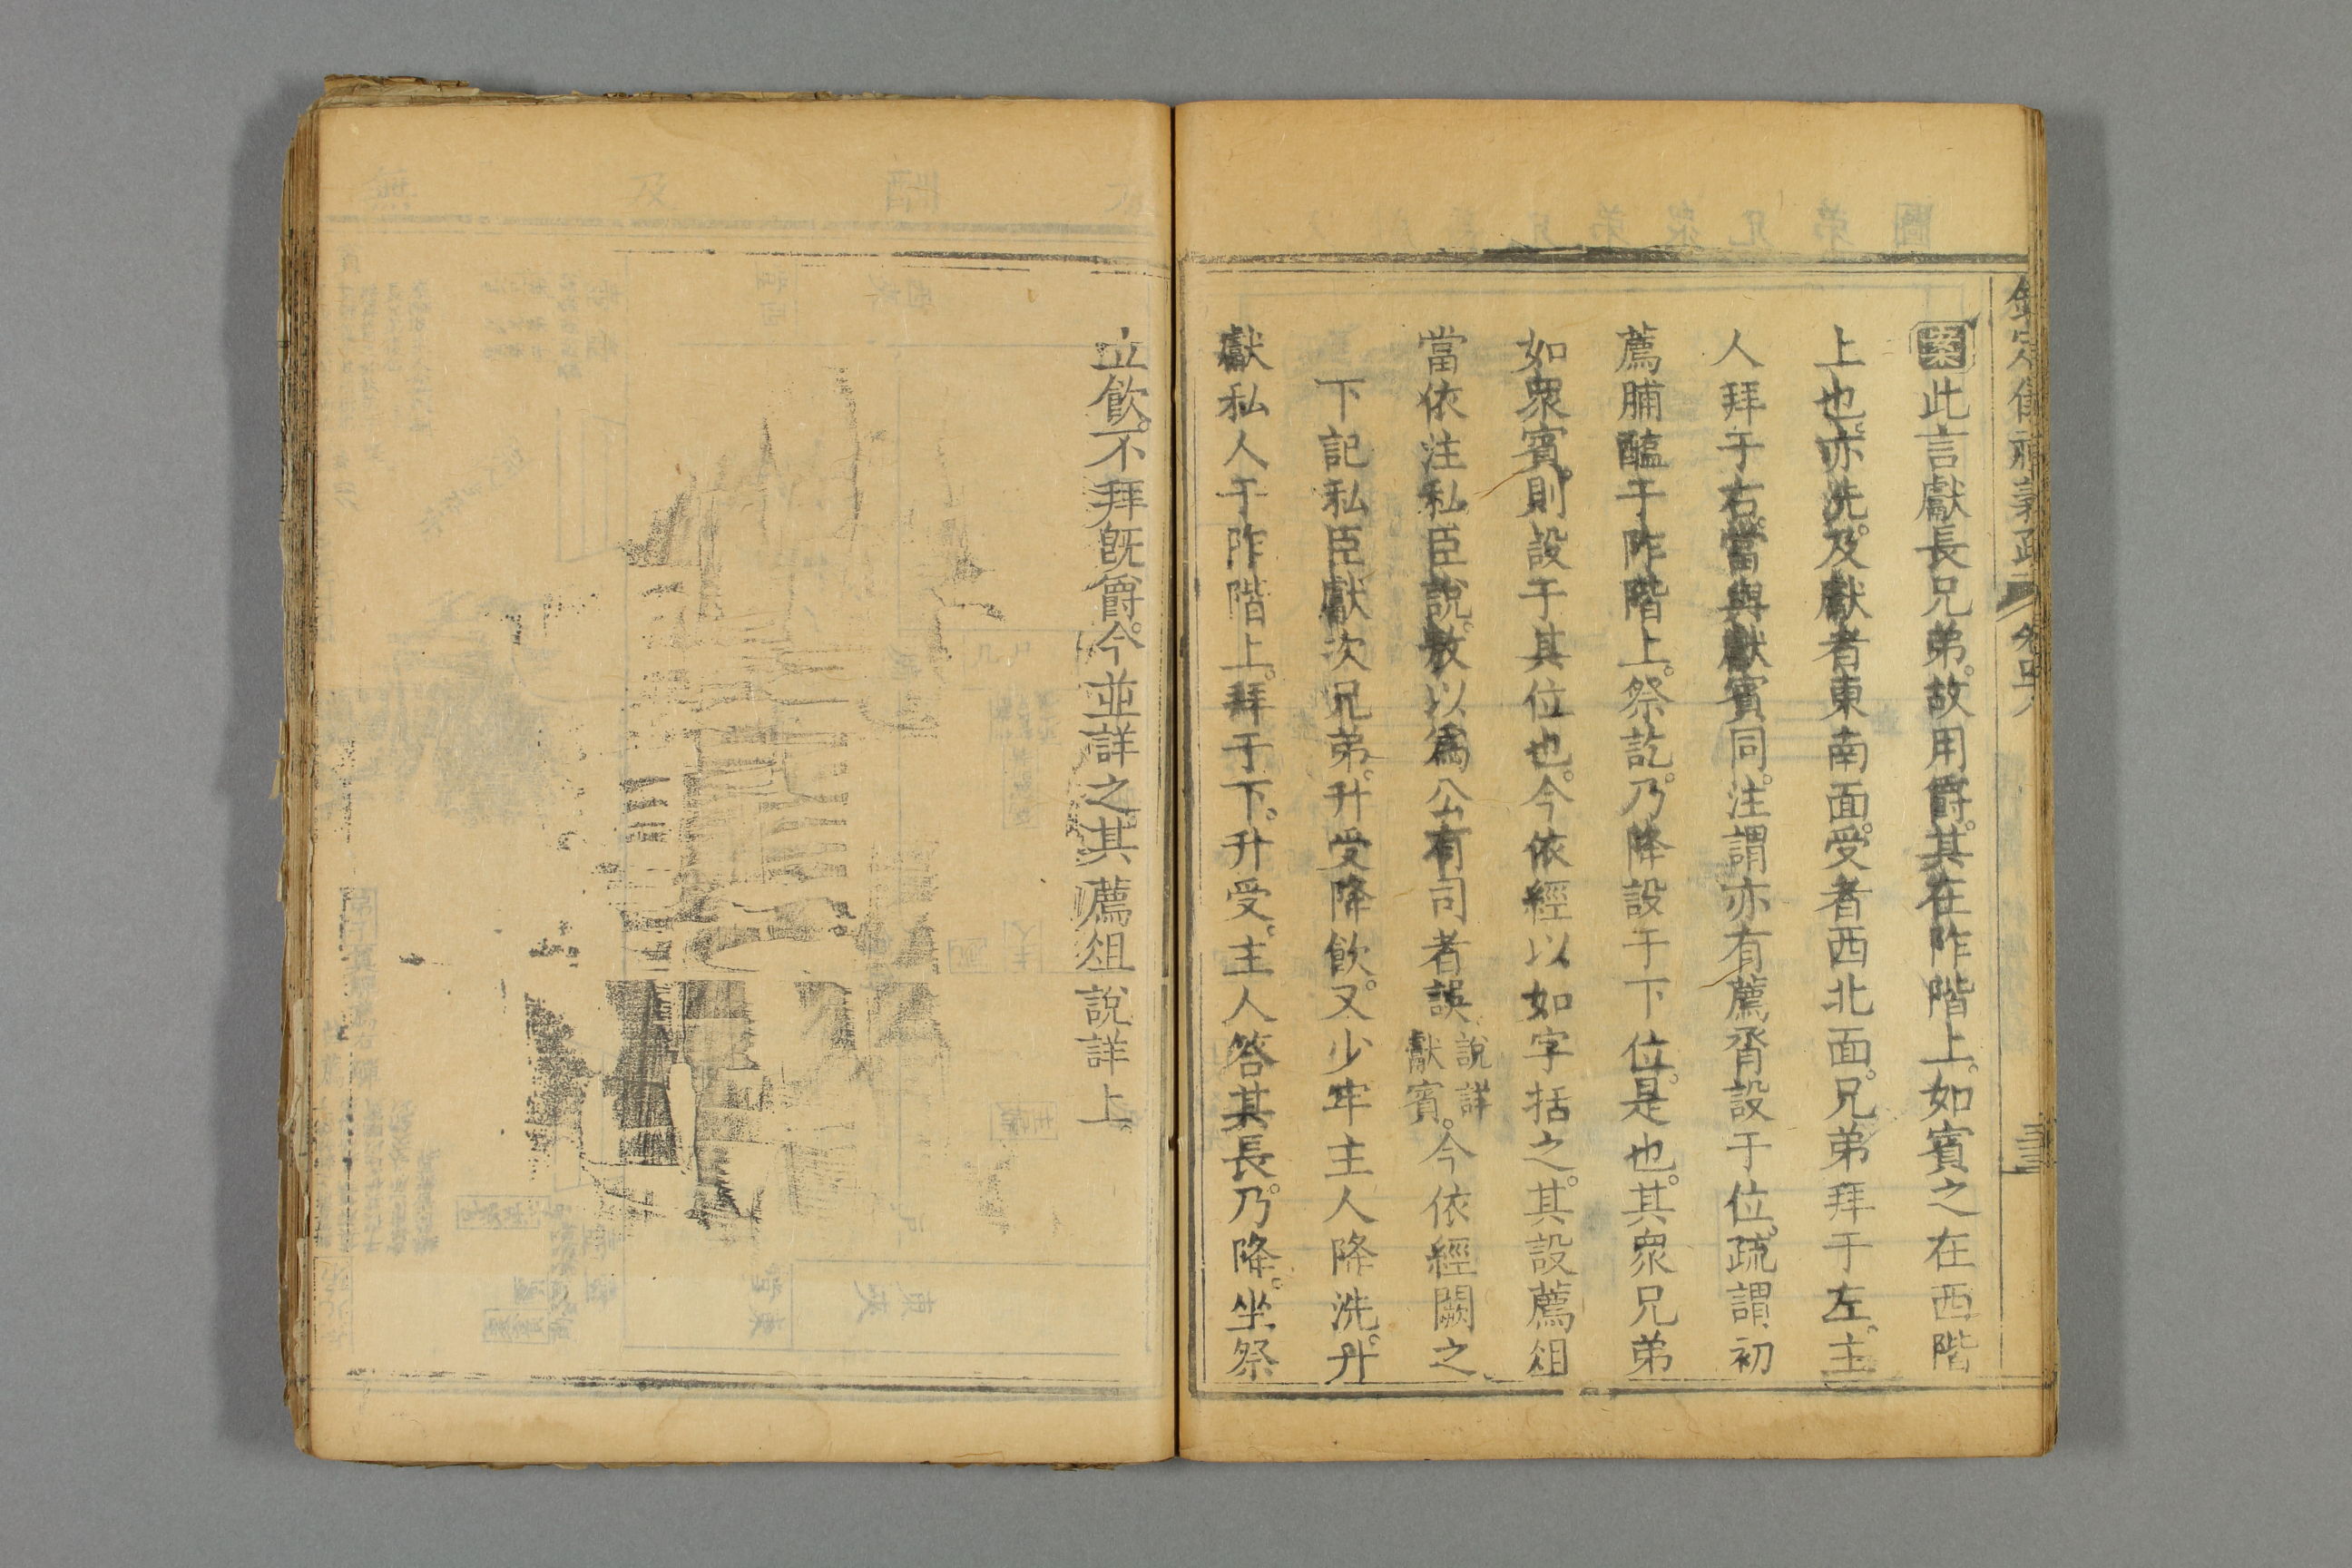 欽定儀禮義疏 卷四十八 三十三
案此言獻長兄弟。故用爵。其在阼階上。如賓之在西階
上也。亦洗。及獻者東南面。受者西北面。兄弟拜于左。主
人拜于右。當與獻賓同。注謂亦有薦脀設于位。疏謂初
薦脯醢于阼階上。祭訖。乃降設于下位。是也。其衆兄弟
如衆賓。則設于其位也。今依經以如字括之。其設薦俎
當依注私臣說。敖以爲公有司者誤說詳獻賓。今依經闕之
下記私臣獻次兄弟。升受降飲。又少牢主人降洗。升
獻私人于阼階上。拜于下。升受。主人答其長。乃降。坐祭
立飲。不拜旣爵。今並詳之。其薦俎說詳上。